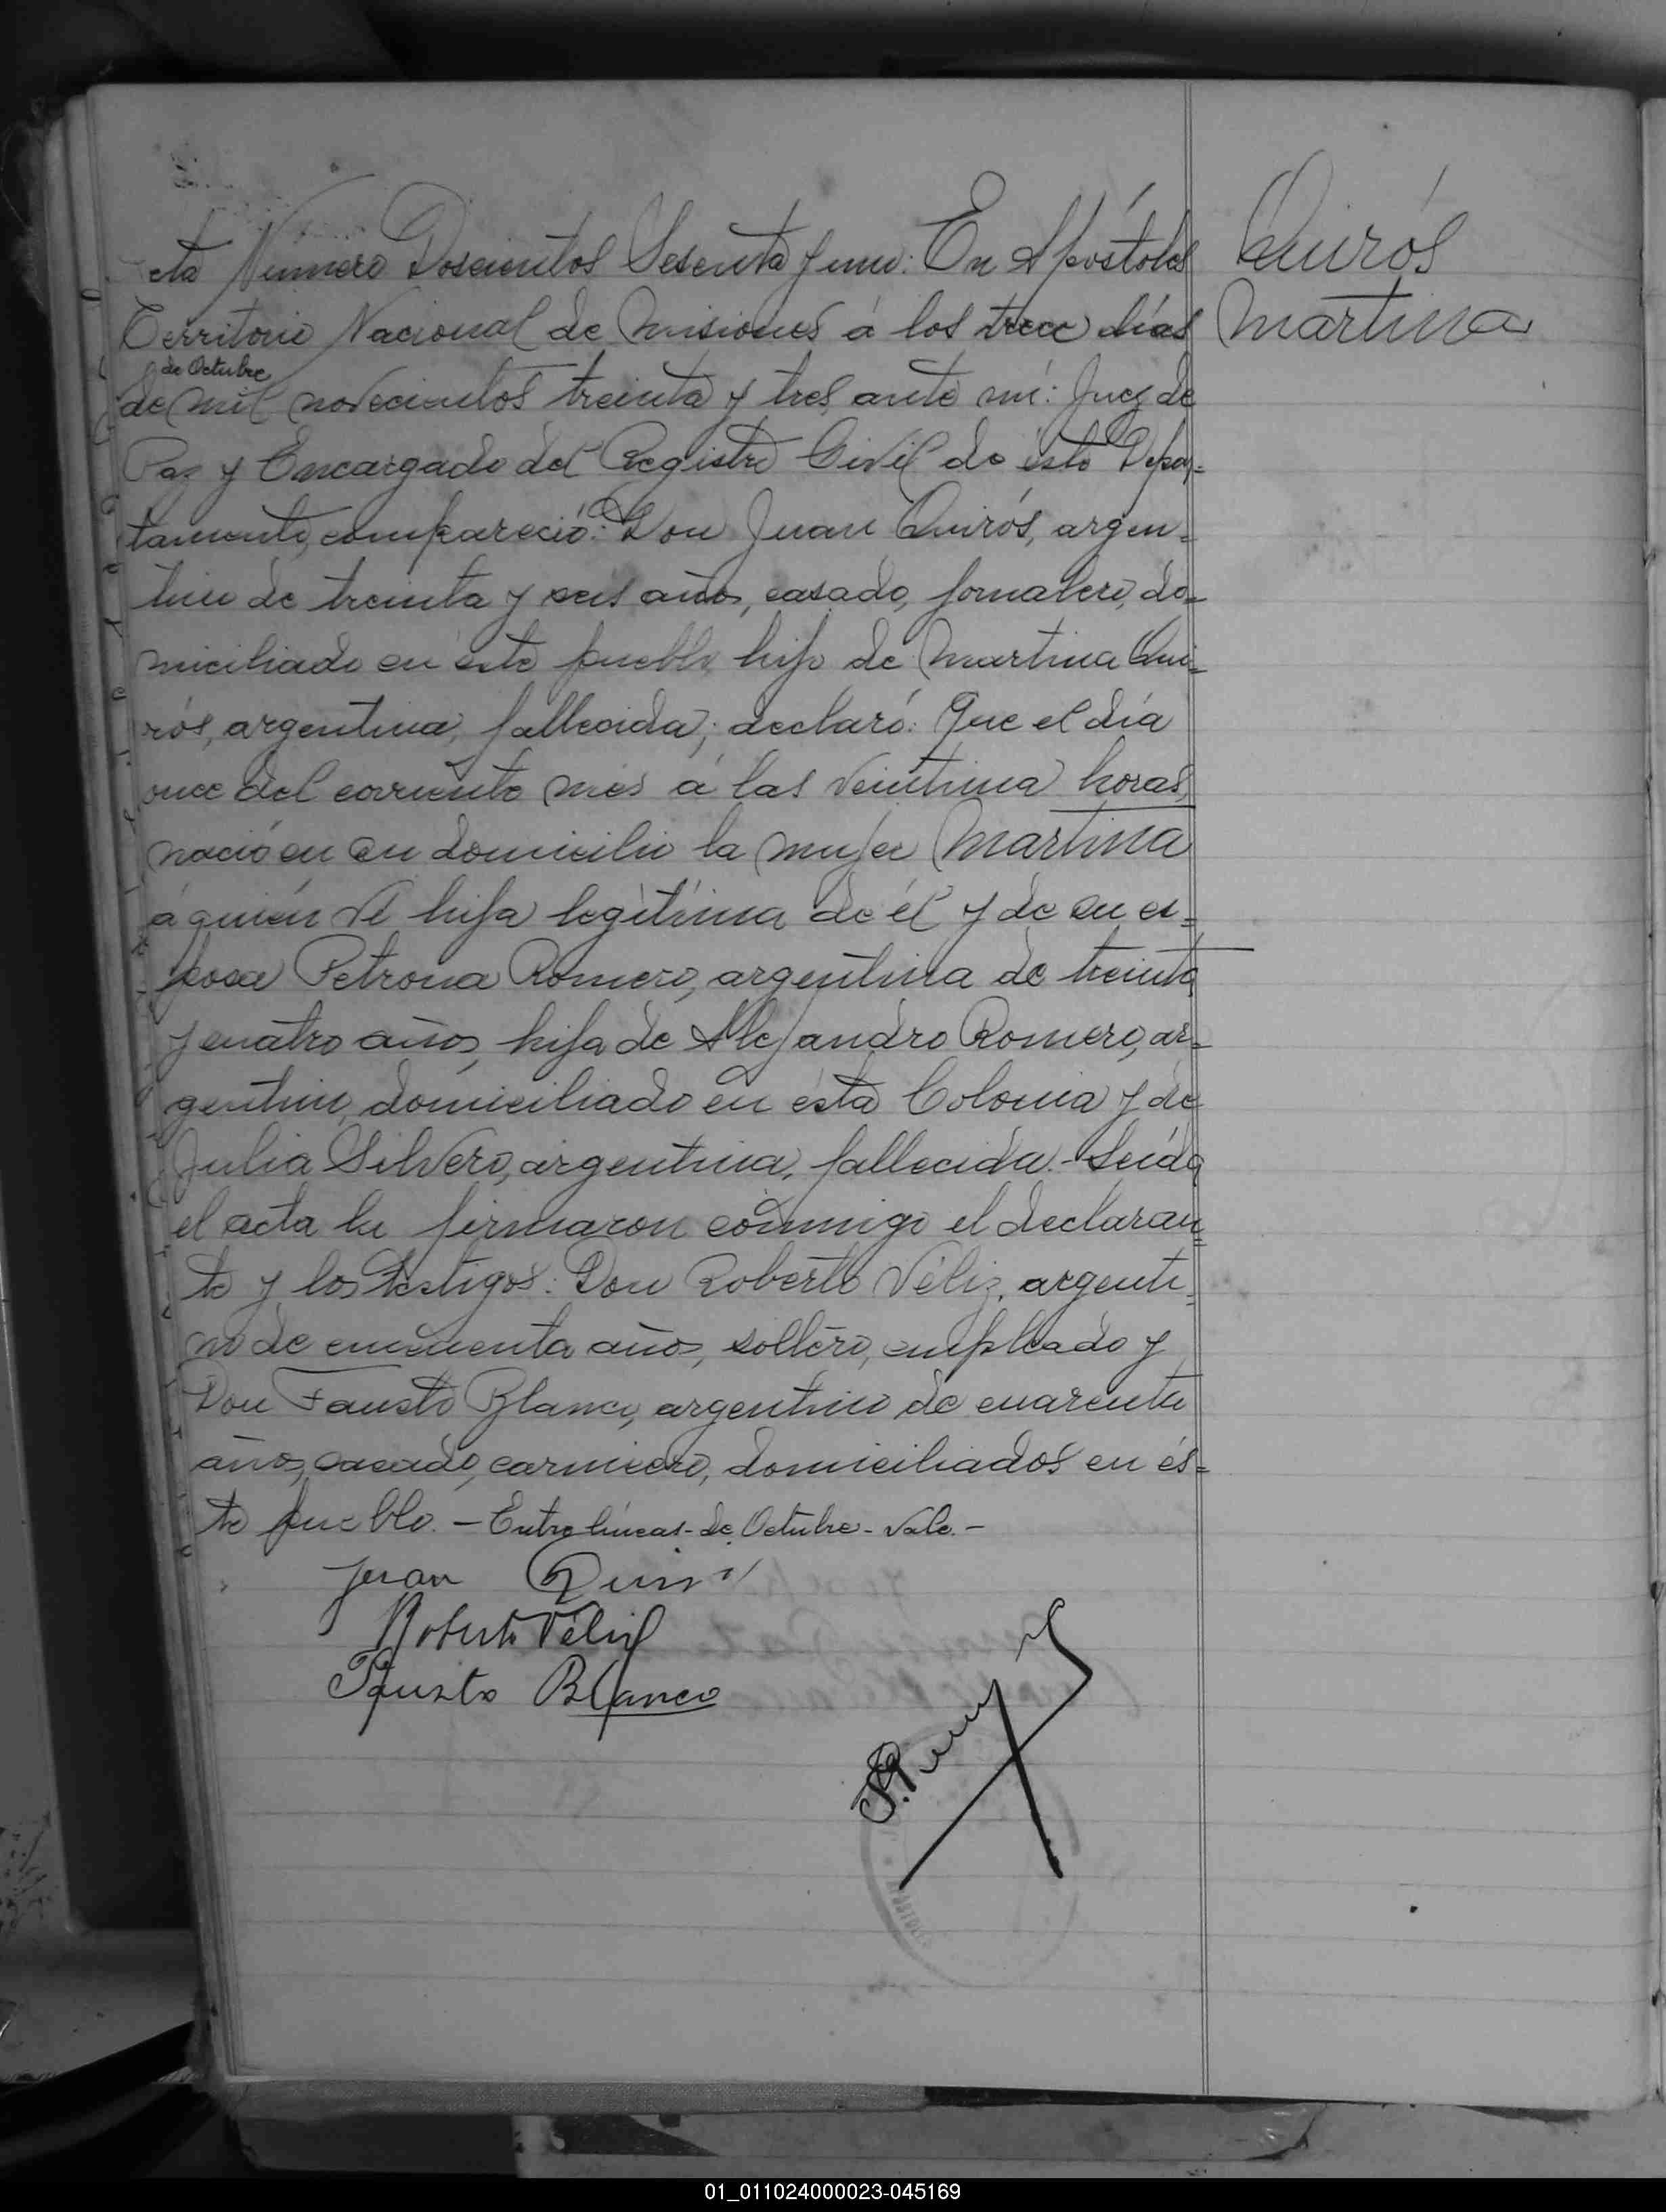 cta Número Doscientos Sesenta y uno: En Apóstoles
Territorio Nacional de Misiones á los trece días
de Octubre
de mil novecientos treinta y tres, ante mí: Juez de
Paz y Encargado del Registro Civil de éste Depar=
tamento, compareció: Don Juan Quirós, argen=
tino de treinta y seis años, casado, jornalero, do=
miciliado en éste pueblo, hijo de Martina Qui=
rós, argentina, fallecida; declaró: Que el día
once del corriente mes á las veintiuna horas,
nació en su domicilio la mujer Martina
á quien vé hija legítima de él y de su es=
posa Petrona Romero, argentina de treinta
y cuatro años, hija de Alejandro Romero, ar=
gentino, domiciliado en ésta Colonia y de
Julia Silvero, argentina, fallecida.- Leída
el acta la firmaron conmigo el declaran=
te y los testigos: Don Roberto Véliz, argenti=
no de cincuenta años, soltero, empleado y
Don Fausto Blanco, argentino de cuarenta
años, casado, carnicero, domiciliados en és=
te pueblo. - Entre líneas - de Octubre - Vale. -
Juan Quiros
Roberto Véliz
Fausto Blanco
Quirós
Martina
01_011024000023-045169